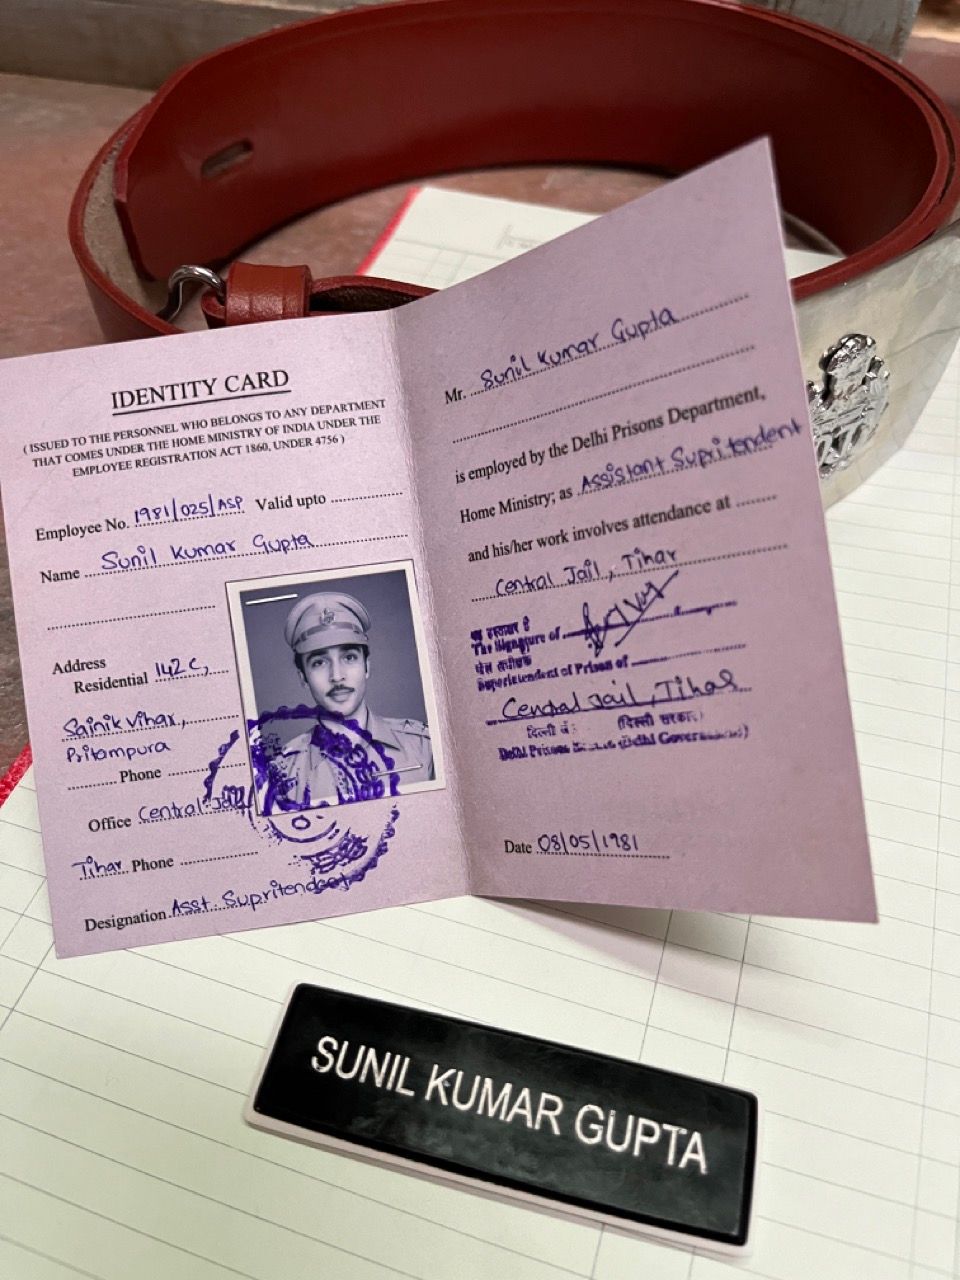 IDENTITY CARD
( ISSUED TO THE PERSONNEL WHO BELONGS TO ANY DEPARTMENT
THAT COMES UNDER THE HOME MINISTRY OF INDIA UNDER THE
EMPLOYEE REGISTRATION ACT 1860, UNDER 4756 )
Employee No. 1981/025/ASP Valid upto
Name Sunil Kumar Gupta
Address
Residential 142 C,
Sainik Vihar,
Pitampura
Phone
Office Central Jail
Tihar Phone
Designation Asst. Supritendent
Mr. Sunil Kumar Gupta
is employed by the Delhi Prisons Department,
Home Ministry; as Assistant Supritendent
and his/her work involves attendance at
Central Jail, Tihar
The Signature of
Superintendent of Prison of
Central Jail, Tihar
(दिल्ली सरकार)
Delhi Prisons (Delhi Government)
Date 08/05/1981
SUNIL KUMAR GUPTA